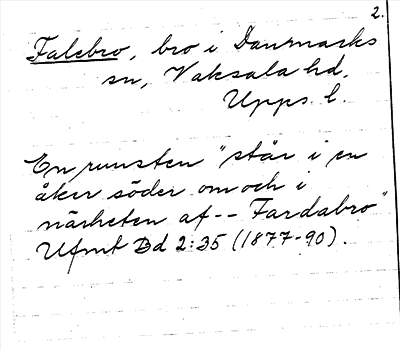 2.
Falebro, bro i Danmarks
sn, Vaksala hd,
Upps. l.
En runsten "står i en
åker söder om och i
närheten af -- Fardabro"
Ufmt Bd 2:35 (1877-90).